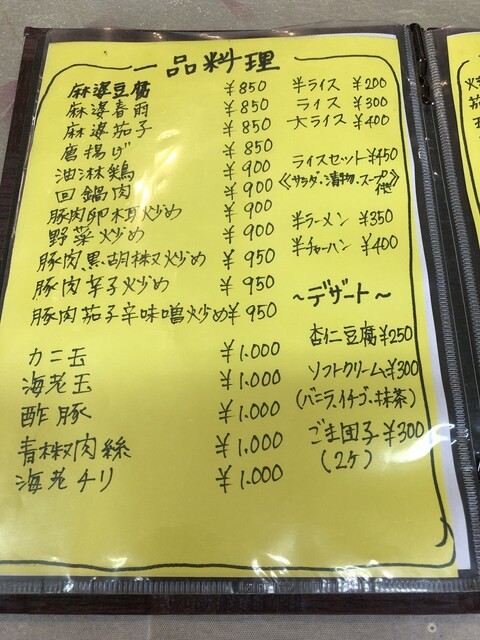 一品料理
麻婆豆腐 ¥850
麻婆春雨 ¥850
麻婆茄子 ¥850
唐揚げ ¥850
油淋鶏 ¥900
回鍋肉 ¥900
豚肉卵木耳炒め ¥900
野菜炒め ¥900
豚肉黒胡椒炒め ¥950
豚肉辛子炒め ¥950
豚肉茄子辛味噌炒め ¥950
カニ玉 ¥1.000
海老玉 ¥1.000
酢豚 ¥1.000
青椒肉絲 ¥1.000
海老チリ ¥1.000
半ライス ¥200
ライス ¥300
大ライス ¥400
ライスセット ¥450
《サラダ・漬物・スープ付》
半ラーメン ¥350
半チャーハン ¥400
~デザート~
杏仁豆腐 ¥250
ソフトクリーム ¥300
(バニラ、イチゴ・抹茶)
ごま団子 ¥300
(2ヶ)